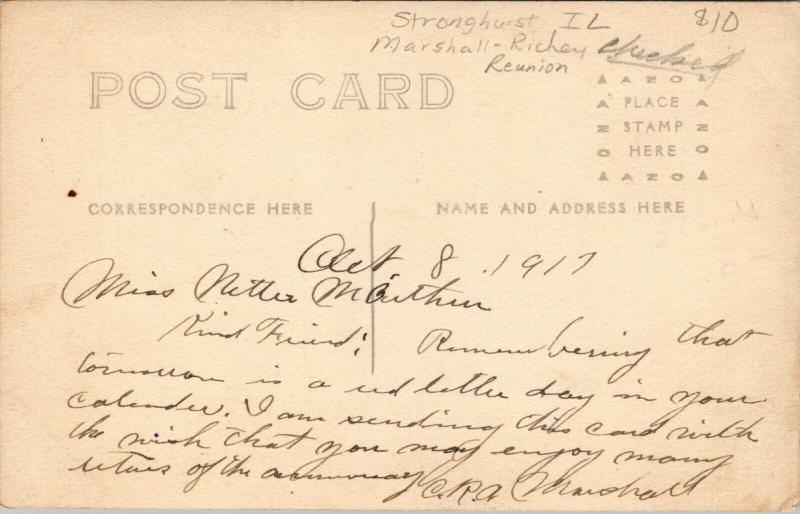 Stronghurst IL $10
Marshall-Richey checked
Reunion
POST CARD
AZO
PLACE
STAMP
HERE
AZO
CORRESPONDENCE HERE NAME AND ADDRESS HERE
Oct 8, 1917
Miss Nettie McArthur
Kind Friend: Remembering that
tomorrow is a red letter day in your
calender. I am sending this card with
the wish that you may enjoy many
returns of the anniversary C.R.A. Marshall